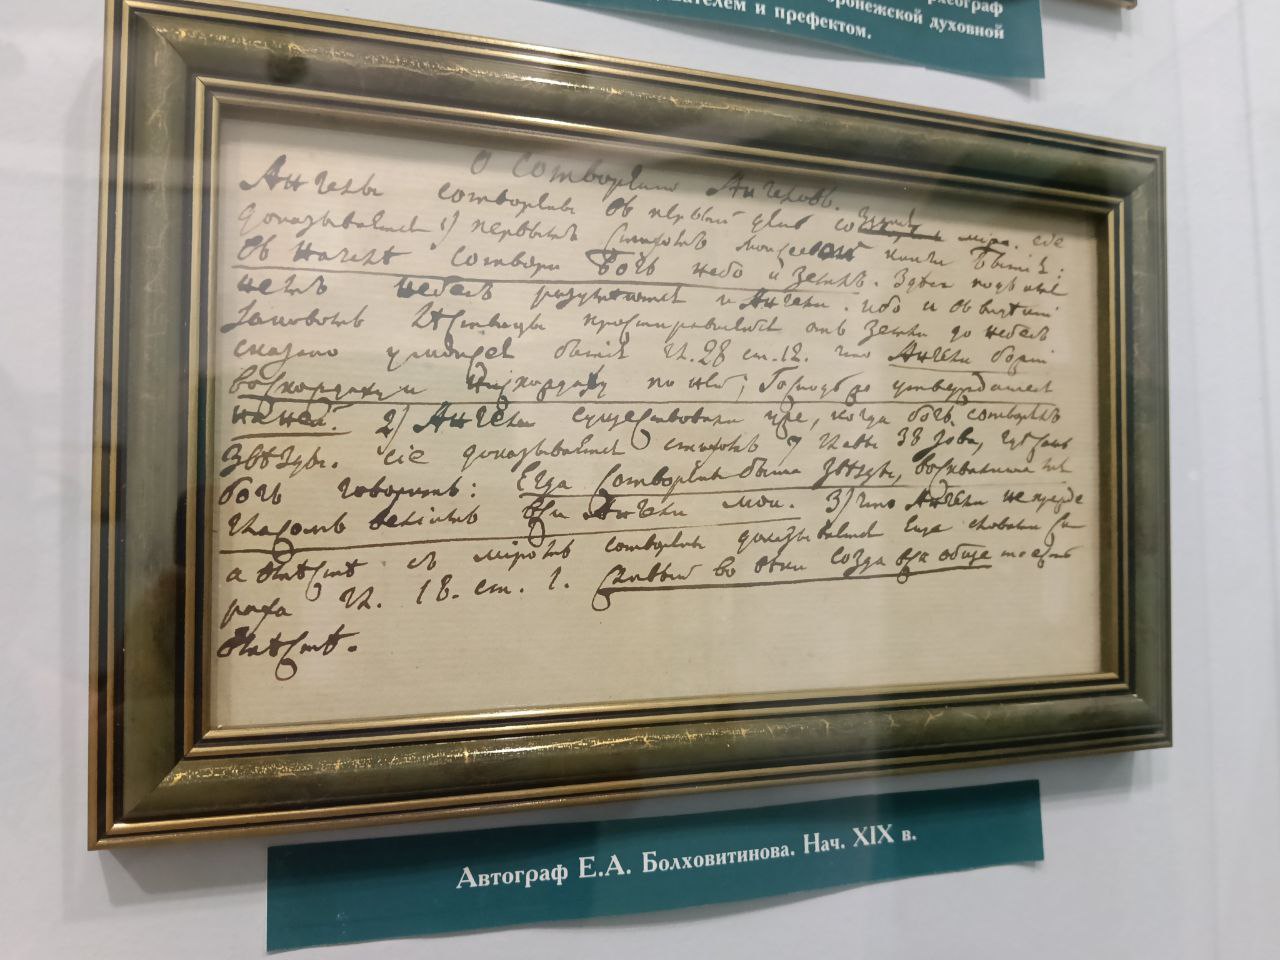 рхеограф
оронежской духовной
ателем и префектом.
О сотворении Ангеловъ.
Ангелы сотворены въ первый день со міра. сіе
доказывается 1) первымъ стихомъ книги Бытія:
въ началѣ сотвори Богъ небо и землю. Здѣсь подъ име
немъ небесъ разумѣются и Ангелы. ибо и въ видѣніи
Іаковомъ лѣствицы простиравшейся отъ земли до небесъ
сказано у Моисея бытія гл. 28 ст. 12. что Ангели божіи
восхождаху и нисхождаху по ней; Господь же утверждашеся
на ней. 2) Ангели существовали уже, когда богъ сотворилъ
звѣзды. сіе доказывается стихомъ 7 главы 38 Іова, гдѣ самъ
богъ говоритъ: Егда сотворены быша звѣзды, восхвалиша мя
гласомъ веліимъ вси Ангели мои. 3) что Ангели не прежде
а вмѣстѣ съ міромъ сотворены доказывается еще словами Си
раха гл. 18. ст. 1. Живый во вѣки созда вся обще то есть
вмѣстѣ.
Автограф Е.А. Болховитинова. Нач. XIX в.